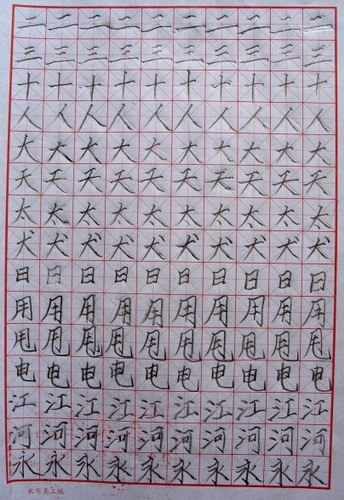 二二二二二二二二二二
三三三三三三三三三三
十十十十十十十十十十
人人人人人人人人人人
大大大大大大大大大大
天天天天天天天天天天
太太太太太太太太太太
犬犬犬犬犬犬犬犬犬犬
日日日日日日日日日日
用用用用用用用用用用
甩甩甩甩甩甩甩甩甩甩
电电电电电电电电电电
江江江江江江江江江江
河河河河河河河河河河
永永永永永永永永永永